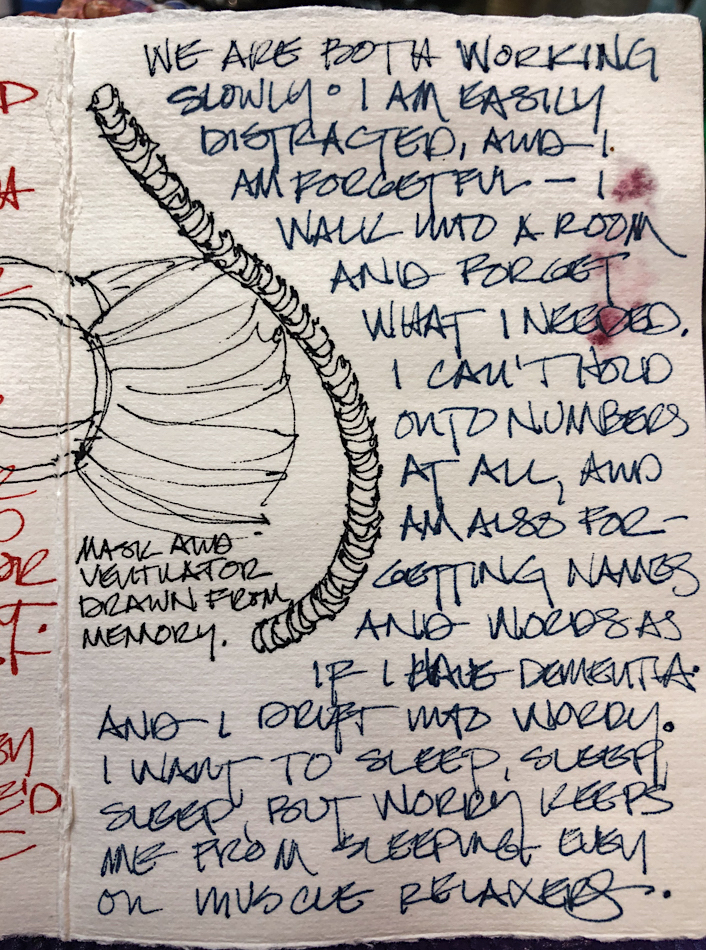 WE ARE BOTH WORKING
SLOWLY. I AM EASILY
DISTRACTED, AND I
AM FORGETFUL — I
WALK INTO A ROOM
AND FORGET
WHAT I NEEDED.
I CAN'T HOLD
ONTO NUMBERS
AT ALL, AND
AM ALSO FOR-
GETTING NAMES
AND WORDS AS
IF I HAVE DEMENTIA.
AND I DRIFT INTO WORRY.
I WANT TO SLEEP, SLEEP,
SLEEP, BUT WORRY KEEPS
ME FROM SLEEPING EVEN
ON MUSCLE RELAXERS.
MASK AND
VENTILATOR
DRAWN FROM
MEMORY.